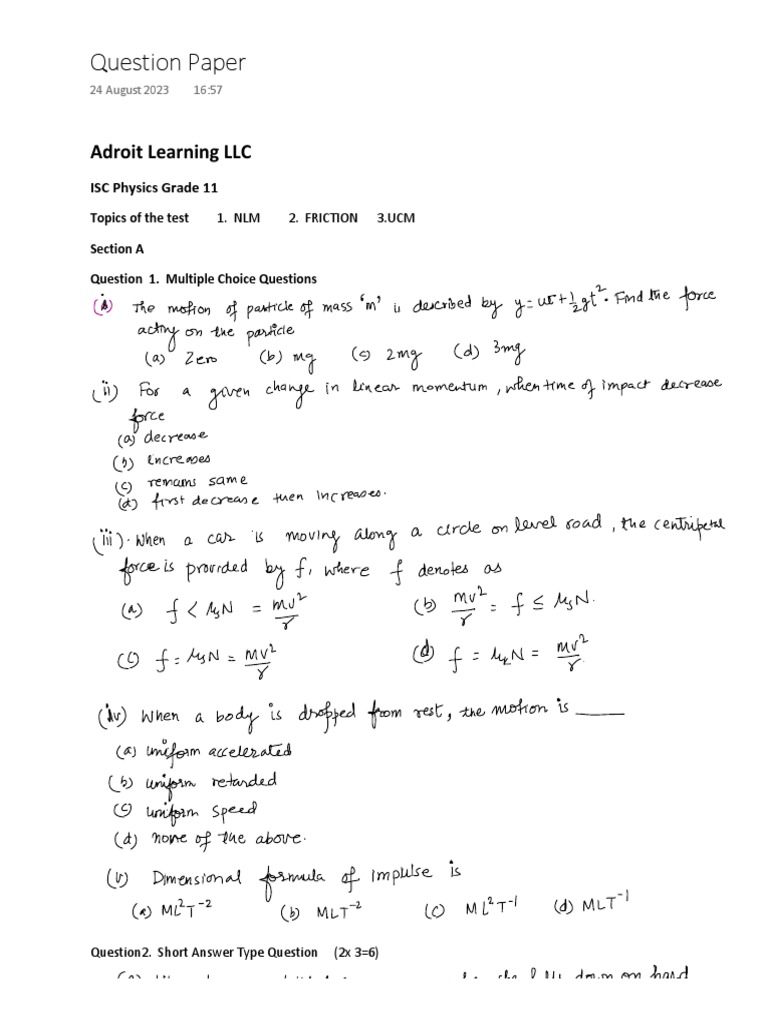 Question Paper
24 August 2023 16:57
Adroit Learning LLC
ISC Physics Grade 11
Topics of the test 1. NLM 2. FRICTION 3.UCM
Section A
Question 1. Multiple Choice Questions
(i) The motion of particle of mass 'm' is described by y = ut + 1/2 gt². Find the force
acting on the particle
(a) Zero (b) mg (c) 2mg (d) 3mg
(ii) For a given change in linear momentum, when time of impact decrease
force
(a) decrease
(b) increases
(c) remains same
(d) first decrease then increases.
(iii). When a car is moving along a circle on level road, the centripetal
force is provided by f, where f denotes as
(a) f < μsN = mv²/r (b) mv²/r = f ≤ μsN.
(c) f = μsN = mv²/r (d) f = μkN = mv²/r
(iv) When a body is dropped from rest, the motion is ____
(a) uniform accelerated
(b) uniform retarded
(c) uniform speed
(d) none of the above.
(v) Dimensional formula of impulse is
(a) ML²T⁻² (b) MLT⁻² (c) ML²T⁻¹ (d) MLT⁻¹
Question2. Short Answer Type Question (2x 3=6)
down on hard